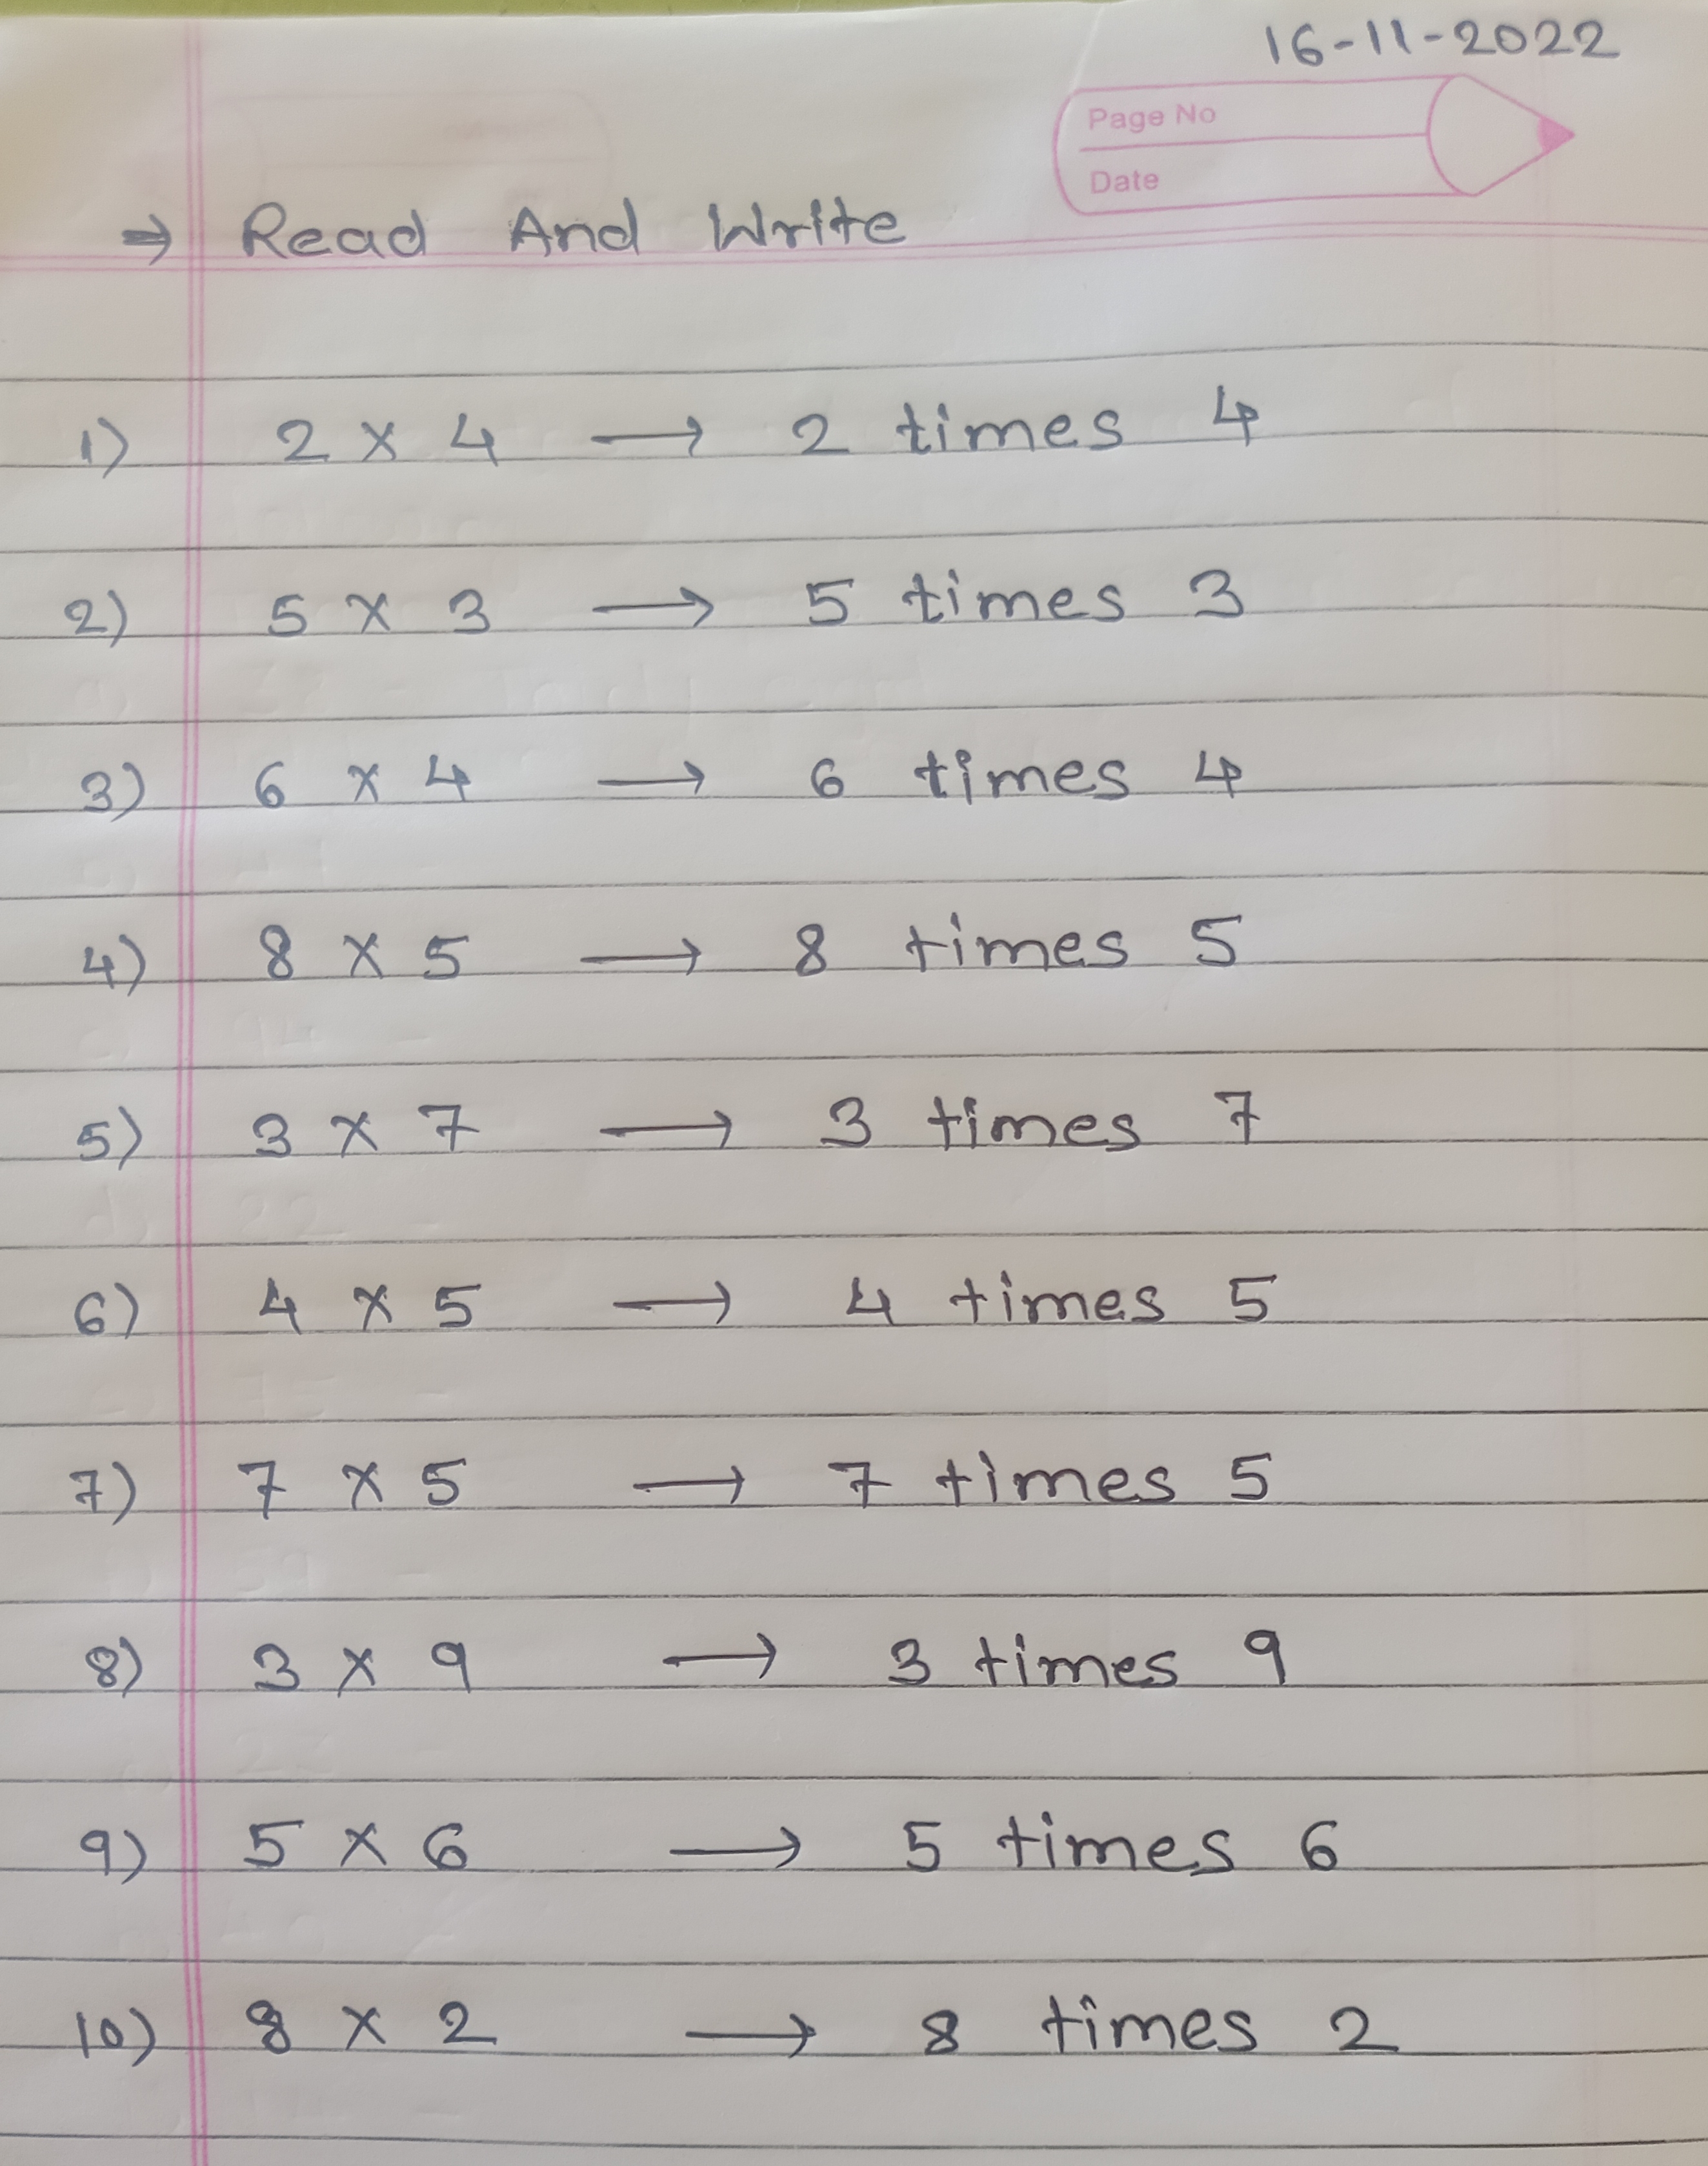 16-11-2022
Page No
Date
⇒ Read And Write
1) 2 × 4 → 2 times 4
2) 5 × 3 → 5 times 3
3) 6 × 4 → 6 times 4
4) 8 × 5 → 8 times 5
5) 3 × 7 → 3 times 7
6) 4 × 5 → 4 times 5
7) 7 × 5 → 7 times 5
8) 3 × 9 → 3 times 9
9) 5 × 6 → 5 times 6
10) 8 × 2 → 8 times 2